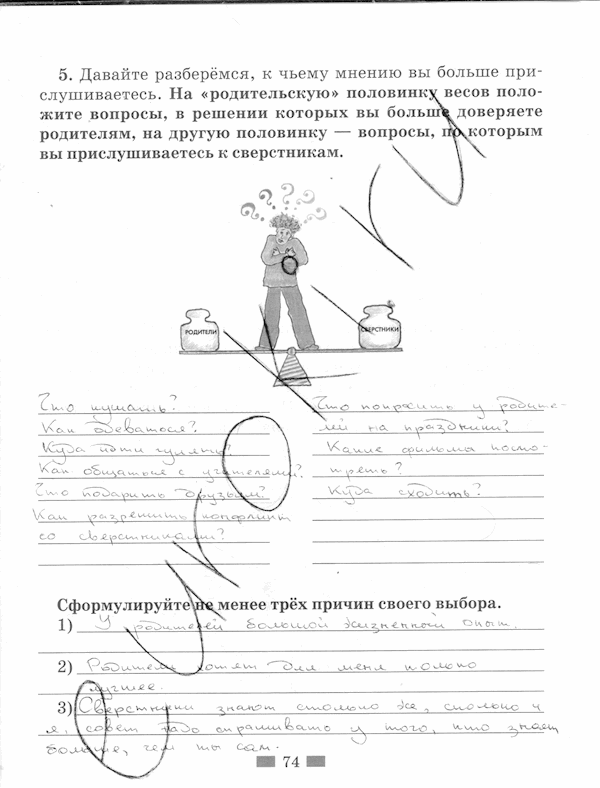 5. Давайте разберёмся, к чьему мнению вы больше при-
слушиваетесь. На «родительскую» половинку весов поло-
жите вопросы, в решении которых вы больше доверяете
родителям, на другую половинку — вопросы, по которым
вы прислушиваетесь к сверстникам.
РОДИТЕЛИ
СВЕРСТНИКИ
Что кушать?
Как одеваться?
Куда идти гулять?
Как общаться с учителями?
Что подарить друзьям?
Как разрешить конфликт
со сверстниками?
Что попросить у родите-
лей на праздники?
Какие фильмы посмо-
треть?
Куда сходить?
Сформулируйте не менее трёх причин своего выбора.
1) У родителей большой жизненный опыт.
2) Родители хотят для меня только
лучшее.
3) Сверстники знают столько же, сколько и
я, совет надо спрашивать у того, кто знает
больше, чем ты сам.
74